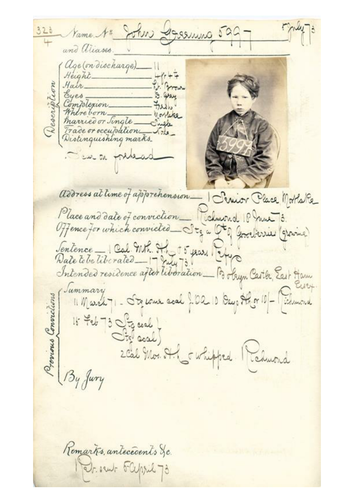 323
4
Name No John Gossning 5997 5 July 73
and Aliases.
Description
Age (on discharge) 11
Height 4ft 4
Hair
Eyes Grey
Complexion Fresh
Where born Mortlake
Married or Single Single
Trade or occupation None
Distinguishing marks.
on forehead
5993
Address at time of apprehension 1 Senior Place Mortlake
Place and date of conviction Richmond 18 June 73.
Offence for which convicted Gooseberries
Sentence 1 Cal Mth. H.L. 5 years Refy
Date to be liberated 17 July 73
Intended residence after liberation East Ham
Essex
Previous Convictions
Summary
11 March 71 coal 10 Days or 10/- Richmond
15 Feb 73 coal
coal
2 Cal Mos. H.L. & whipped Richmond
By Jury
Remarks, antecedents &c.
Ret. sent 5 April 73